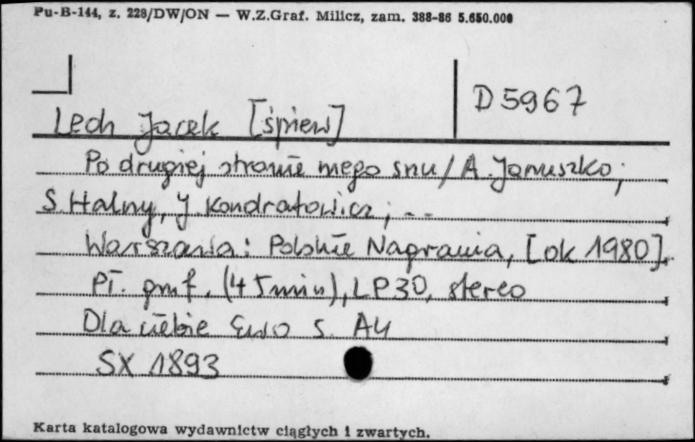 Pu-B-144, z. 228/DW/ON — W.Z.Graf. Milicz, zam. 388-86 5.650.000
D 5967
Lech Jacek [śpiew]
Po drugiej stronie mego snu / A. Januszko;
S. Halny, J. Kondratowicz; ..
Warszawa: Polskie Nagrania, [ok 1980].
Pł. gmf. (45 min), LP30, stereo
Dla ciebie Ewo s. A4
SX 1893
Karta katalogowa wydawnictw ciągłych i zwartych.